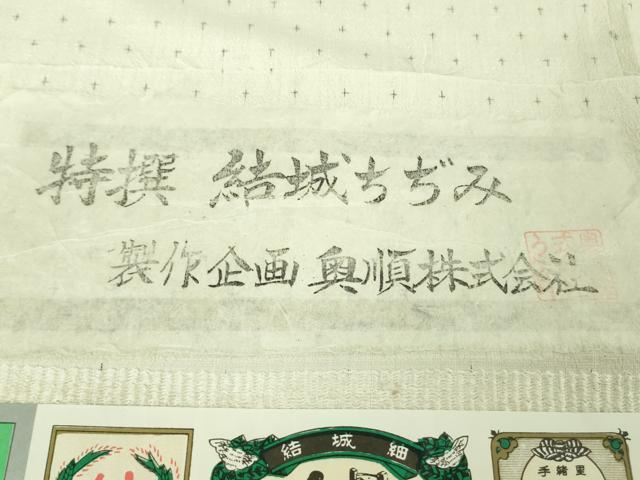 特撰 結城ちぢみ
製作企画 奥順株式会社
結城紬
手緒里